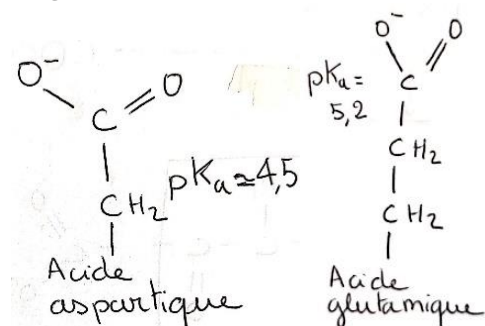 O⁻ O
C
CH₂ pKa≃4,5
Acide
aspartique
O⁻ O
pKa= C
5,2
CH₂
CH₂
Acide
glutamique